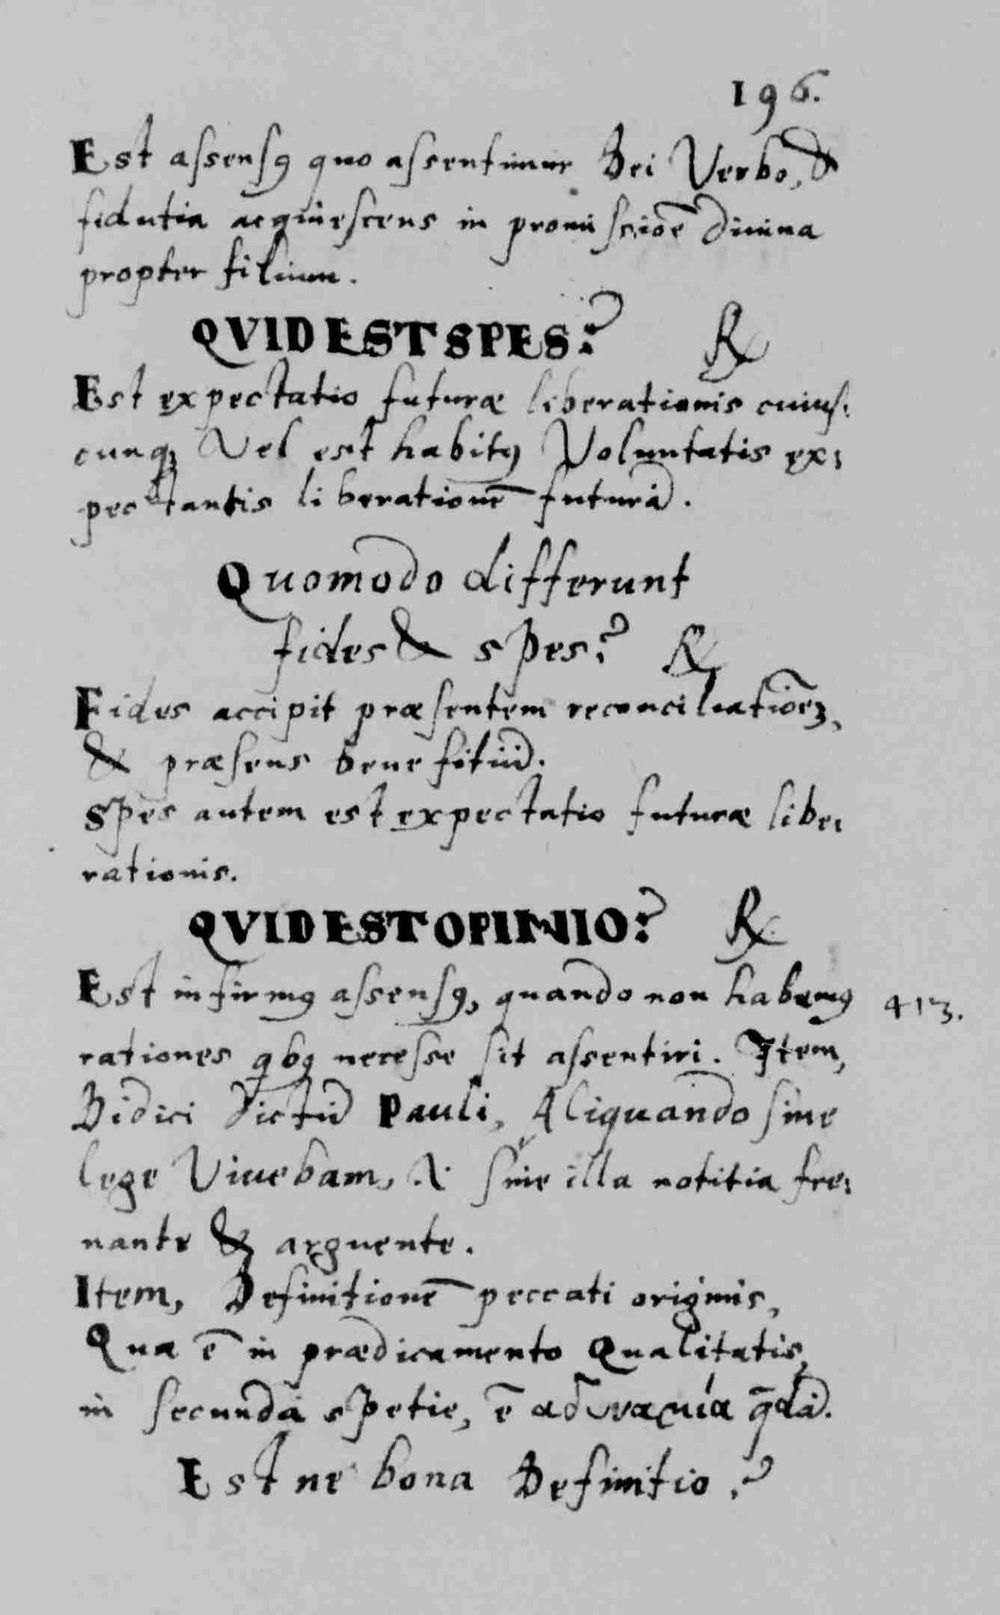 196.
Est assensꝯ quo assentimur Dei Verbo, &
fidutia acquiescens in promissioē diuina
propter filium.
QVID EST SPES? ℞
Est expectatio futuræ liberationis cuius:
cunqꝫ Vel est habitꝯ Voluntatis ex:
pectantis liberationē futurā.
Quomodo differunt
fides & spes? ℞
Fides accipit præsentem reconciliatiōeꝫ,
& præsens benefitiū.
Spes autem est expectatio futuræ libe:
rationis.
QVID EST OPINIO? ℞
Est infirmꝯ assensꝯ, quando non habemꝯ 413.
rationes qbꝯ necesse sit assentiri. Item,
Didici dictū Pauli, Aliquando sine
lege Viuebam, .i. sine illa notitia fre:
nante & arguente.
Item, Definitionē peccati originis,
Quæ ē in prædicamento Qualitatis,
in secundā spetie, ē ἀδυναμία q̄dā.
Est ne bona Definitio?